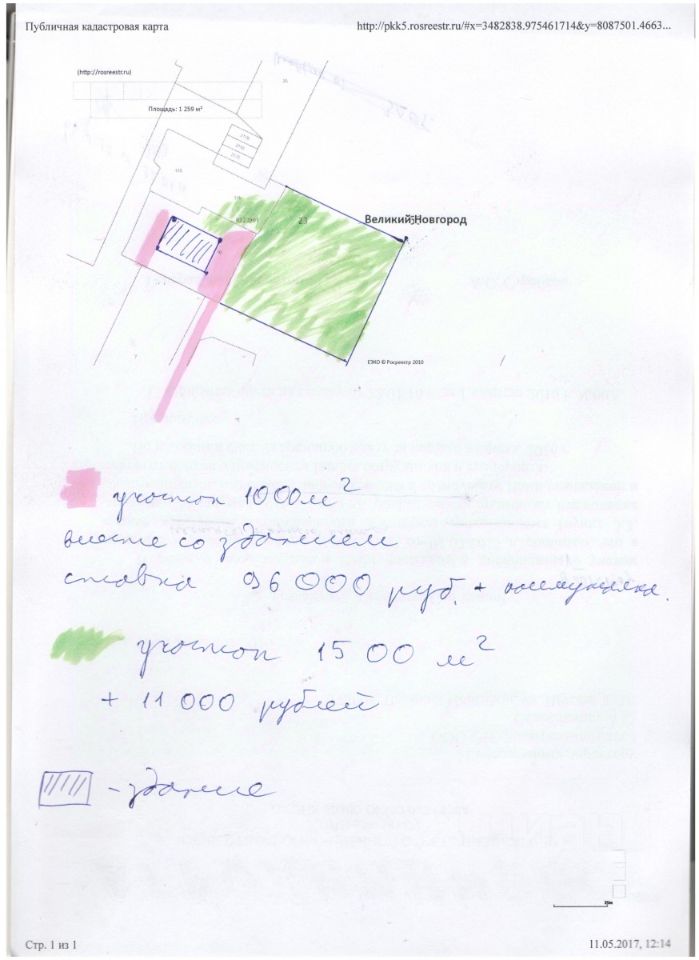 Публичная кадастровая карта
http://pkk5.rosreestr.ru/#x=3482838.975461714&y=8087501.4663...
(http://rosreestr.ru)
Площадь: 1 259 м²
23
Великий Новгород
ЕЭКО © Росреестр 2010
участок 1000 м²
вместе со зданием
ставка 96 000 руб. + коммуналка.
участок 1500 м²
+ 11 000 рублей
- здание
Стр. 1 из 1
11.05.2017, 12:14